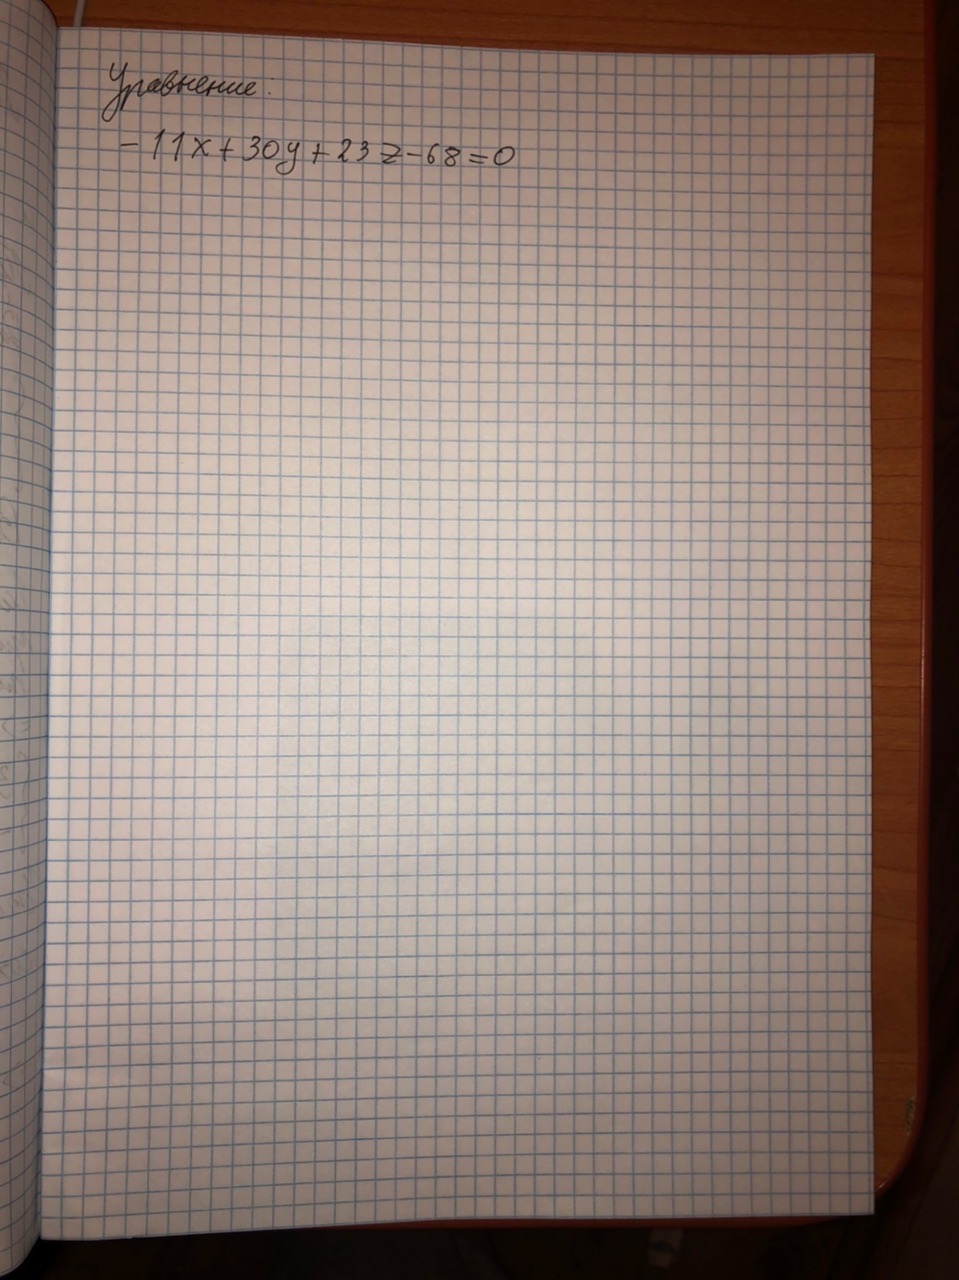 Уравнение:
-11x+30y+23z-68=0